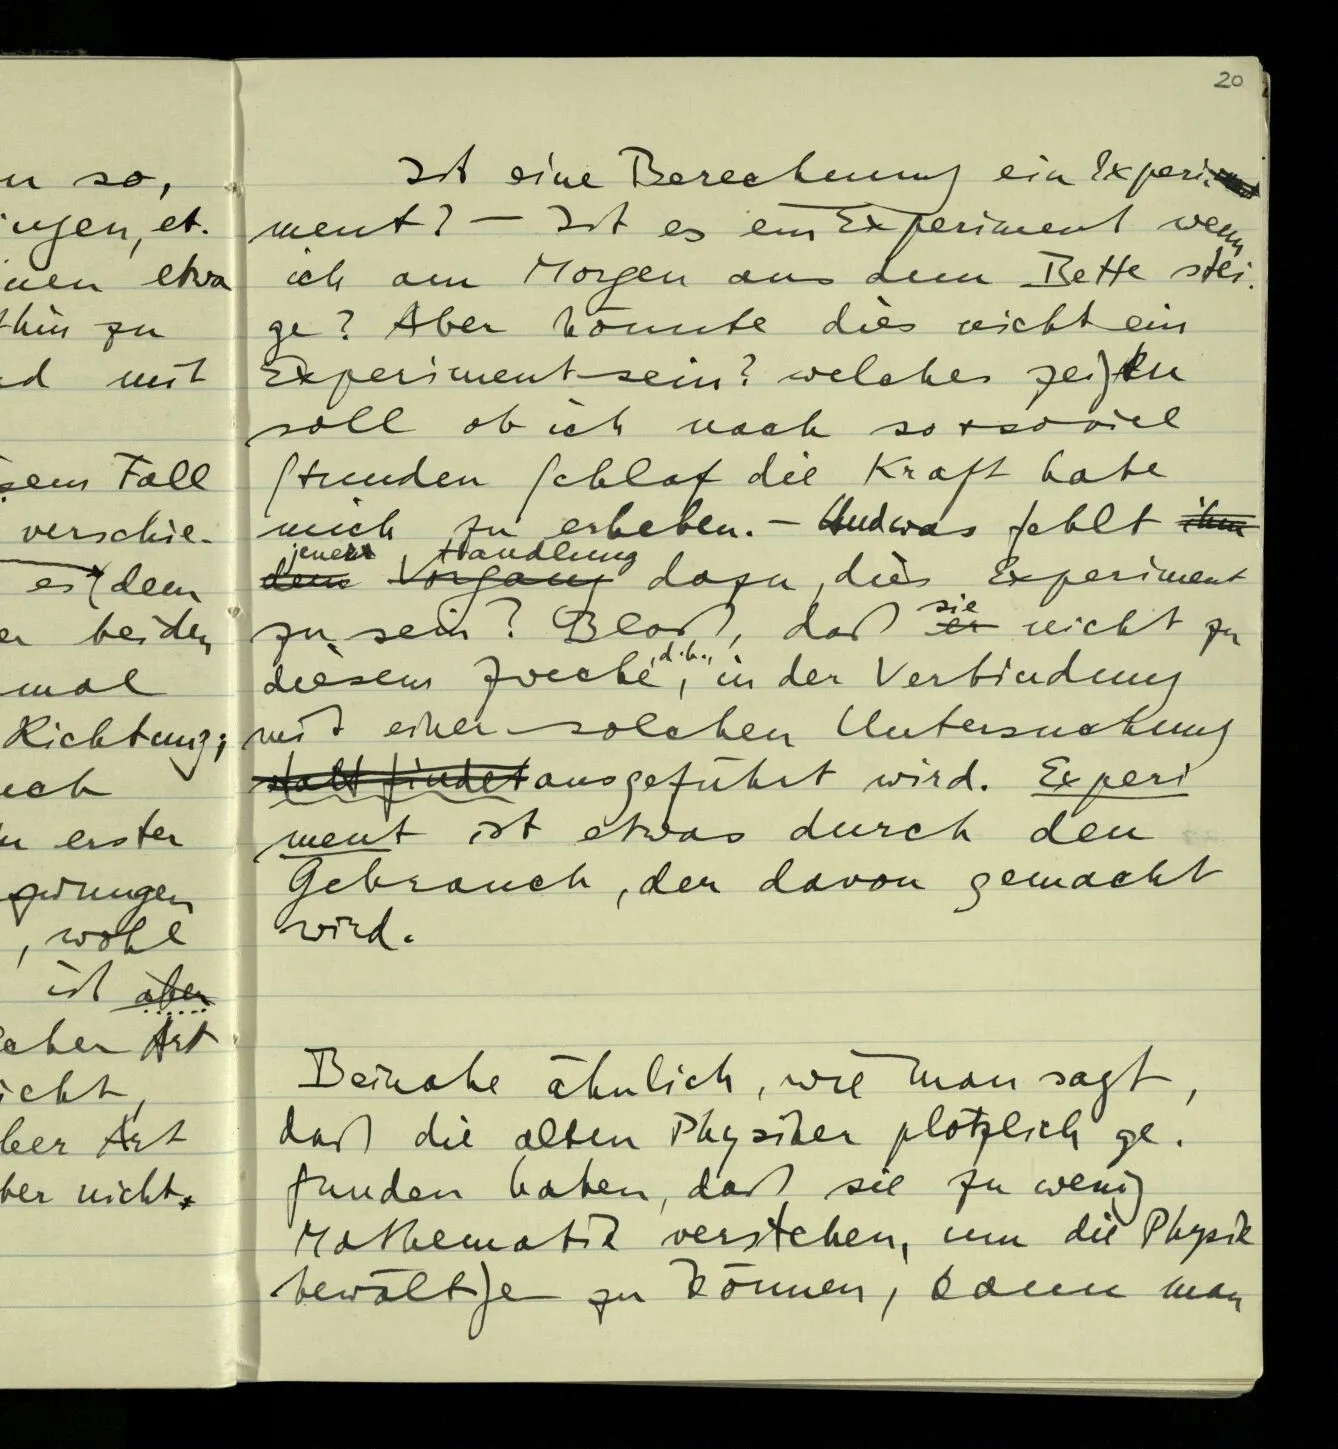 20
n so,
ingen, et.
inen etwa
thin zu
nd mit
sem Fall
verschie-
es dem
er beiden
mal
Richtung;
uch
n erster
, wohl
ist aber
cher Art
icht,
ber Art
ber nicht.
Ist eine Berechnung ein Experi
ment? – Ist es ein Experiment wenn
ich am Morgen aus dem Bette stei-
ge? Aber könnte dies nicht ein
Experiment sein? welches zeigen
soll ob ich nach so & soviel
Stunden Schlaf die Kraft habe
mich zu erheben. – Und was fehlt ihm
jener Handlung
dem Vorgang dazu, dies Experiment
zu sein? Bloß, daß er sie nicht zu
diesem Zwecke, d.h., in der Verbindung
mit einer solchen Untersuchung
statt findet ausgeführt wird. Experi
ment ist etwas durch den
Gebrauch, der davon gemacht
wird.
Beinahe ähnlich, wie man sagt,
daß die alten Physiker plötzlich ge-
funden haben, daß sie zu wenig
Mathematik verstehen, um die Physik
bewältigen zu können, kann man